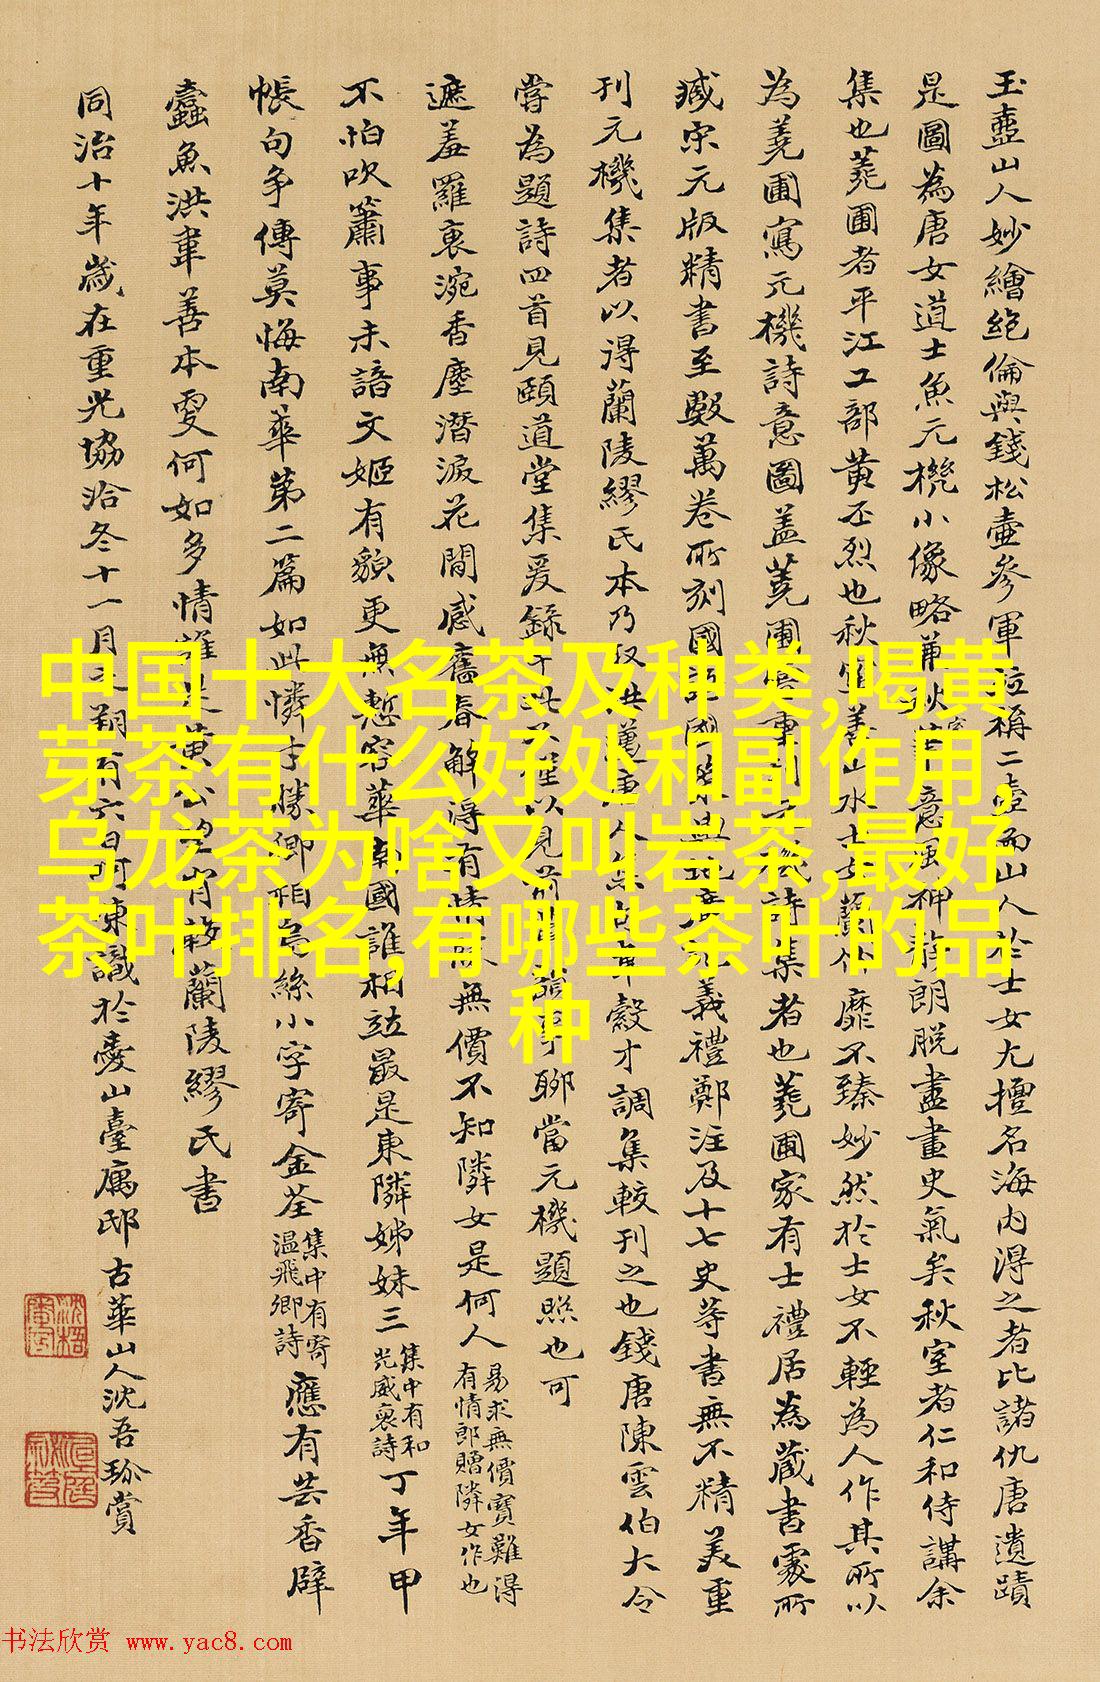 玉壺山人妙繪絕倫與錢松壺參軍竝稱二壺而山人於士女尤擅名海內得之者比諸仇唐遺蹟
是圖為唐女道士魚元機小像略
意風神靜朗脫盡畫史氣矣秋室者仁和侍講余
集也蕘圃者平江工部黃丕烈也秋室善山水士女蘭竹靡不臻妙然於士女不輕為人作其所以
為蕘圃寫元機詩意圖盖蕘圃
詩集者也蕘圃家有士禮居為藏書處所
臧宋元版精書至數萬卷所刻國語國
義禮鄭注及十七史等書無不精美重
刊元機集者以得蘭陵繆氏本乃
唐人集
才調集較刊之也錢唐陳雲伯大令
嘗為題詩四首見頤道堂集爰錄于此不僅以見前
聊當元機題照也可
遮羞羅裏涴香塵潛淚花間感舊春解得有情
無價不知隣女是何人
易求無價寶難得
有情郎贈隣女作也
不怕吹簫事未諳文姬有貌更無慙容華南國誰相竝最是東隣姊妹三
集中有和
光威裒詩
丁年甲
帳句争傳莫悔南華第二篇如此憐才勝
絲小字寄金荃
集中有寄
温飛卿詩
應有芸香辟
蠹魚洪韋善本更何如多情
蘭陵繆氏書
同治十年歲在重光協洽冬十一月
識於
山臺寓邸古華山人沈吾珎賞
中国十大名茶及种类,喝黄
芽茶有什么好处和副作用,
乌龙茶为啥又叫岩茶,最好
茶叶排名,有哪些茶叶的品
种
书法欣赏 www.yac8.com